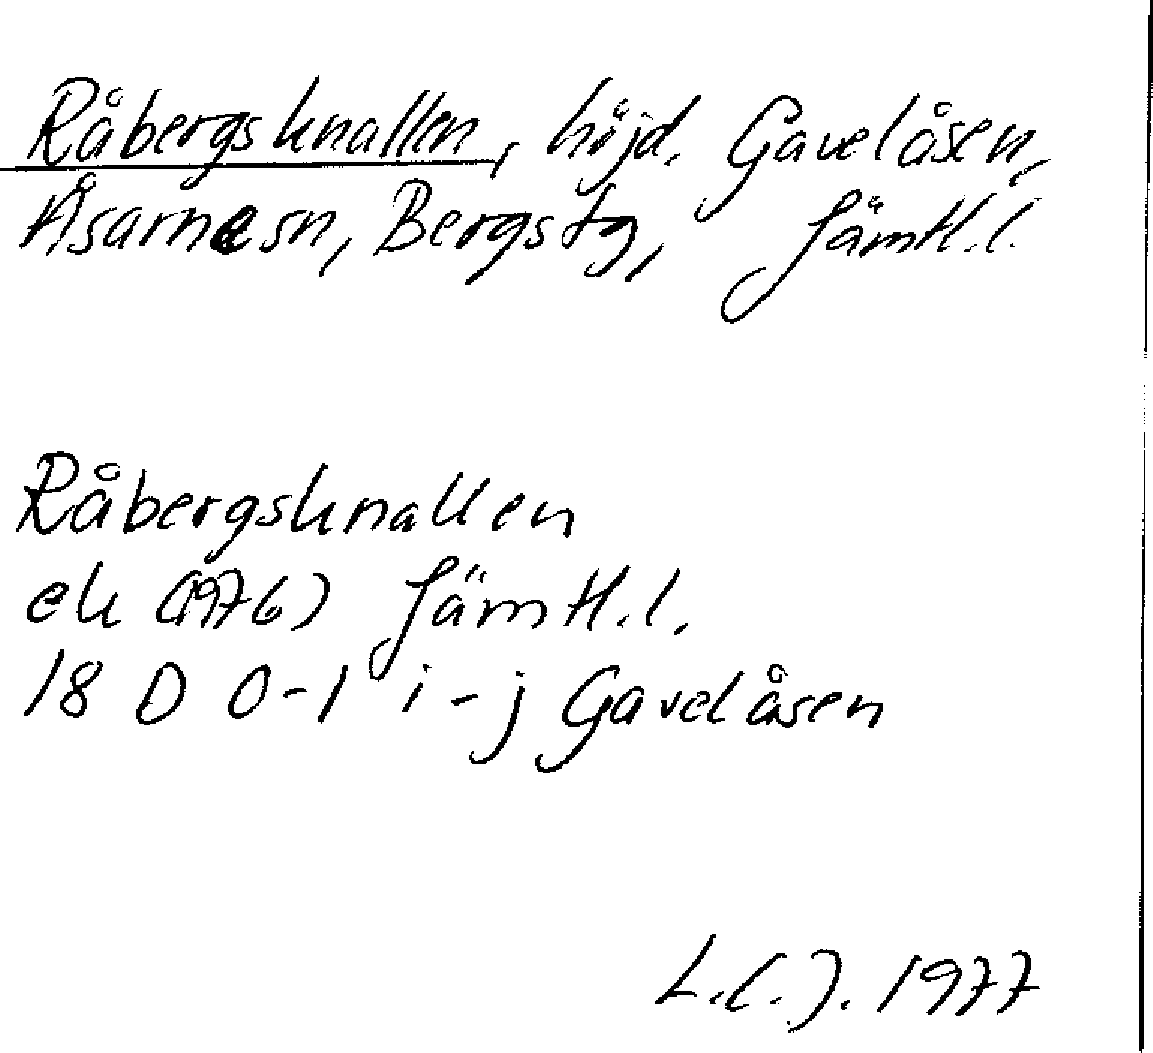 Råbergsknallen, höjd. Gavelåsen,
Åsarnesn, Bergstg, Jämtl.l.
Råbergsknallen
ek (1976) Jämtl.l.
18 D 0-1 i-j Gavelåsen
L.C.J. 1977